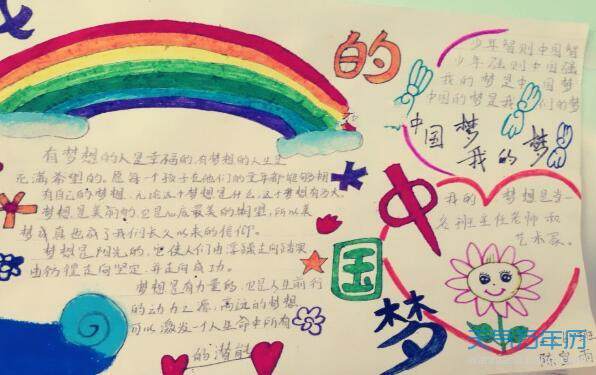 我
的
中
国
梦
有梦想的人是幸福的,有梦想的人生是
充满希望的。愿每一个孩子在他们的童年都能够拥
有自己的梦想,无论这个梦想是什么,这个梦想有多大。
梦想是美丽的,它是心底最美的期望,所以美
梦成真也成了我们长久以来的信仰。
梦想是阳光的,它使人们由浮躁走向踏实,
由彷徨走向坚定,并走向成功。
梦想是有力量的,它是人生前行
的动力之源;高远的梦想
可以激发一个人生命中所有
的潜能
少年智则中国智
少年强则中国强
我的梦是中国梦
中国的梦是我们的梦
中国梦
我的梦
我的梦想是当一
名班主任老师和
艺术家。
陈宣雨